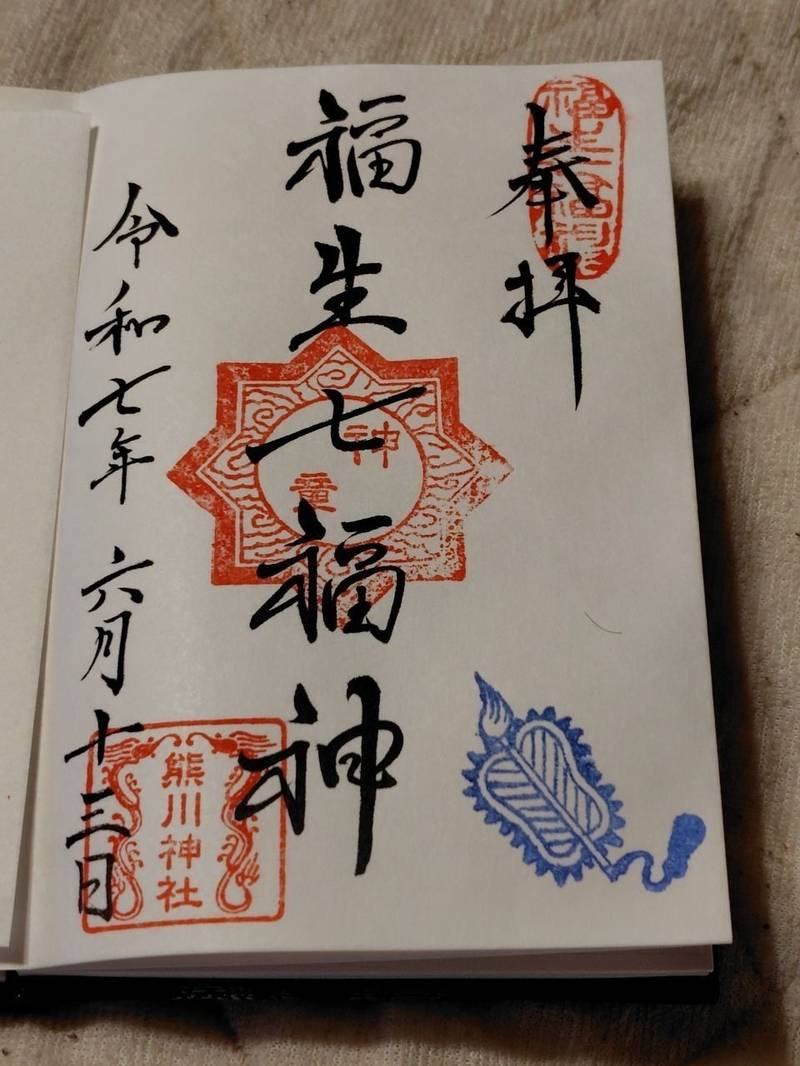 奉拝
福生七福神
神
竜
令和七年 六月十三日
熊川神社